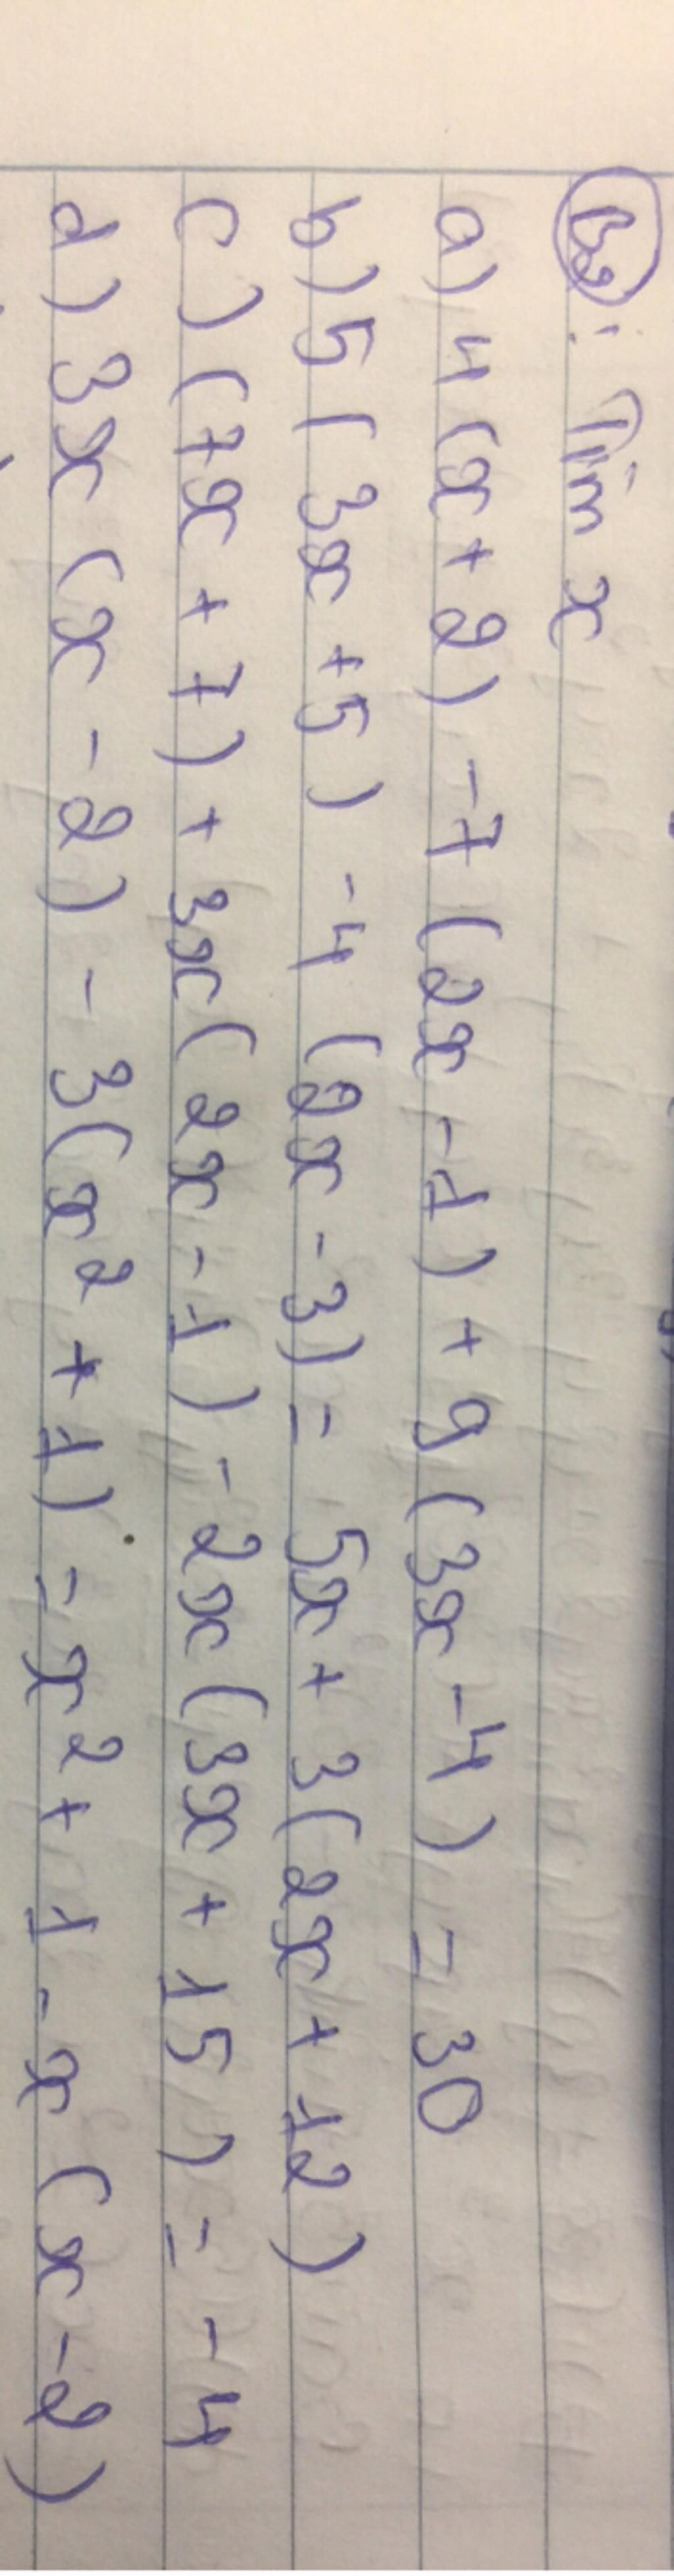 B2: Tìm x
a) 4(x+2) -7(2x-1) + 9(3x-4) = 30
b) 5(3x+5) -4(2x-3) = 5x + 3(2x+12)
c) (7x+7) + 3x(2x-1) - 2x(3x+15) = -4
d) 3x(x-2) - 3(x² + 1) = x² + 1 - x(x-2)